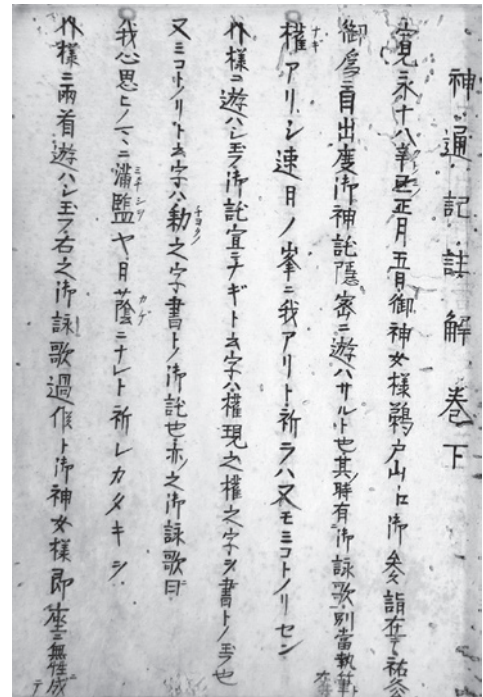 神通記註解巻下
寛永十八辛巳正月五日御神女様鵜戸山江御参詣在テ祐久
御為ニ目出度御神託隠密ニ遊ハサルト也其時有御詠歌別當執筆ト
権アリシ速日ノ峯ニ我アリト祈ラハ又モミコトノリセン
个様ニ遊ハシ玉フ御託宣ニナギト云字ハ權現之權之字ヲ書トノ玉フ也
又ミコトノリト云字ハ勅之字書トノ御託也亦之御詠歌曰
我心思ヒノマヽニ満塩ヤ月蔭ニナレト祈レカタキシ
个様ニ兩首遊ハシ玉フ右之御詠歌過候ト御神女様即座ニ無性成テ